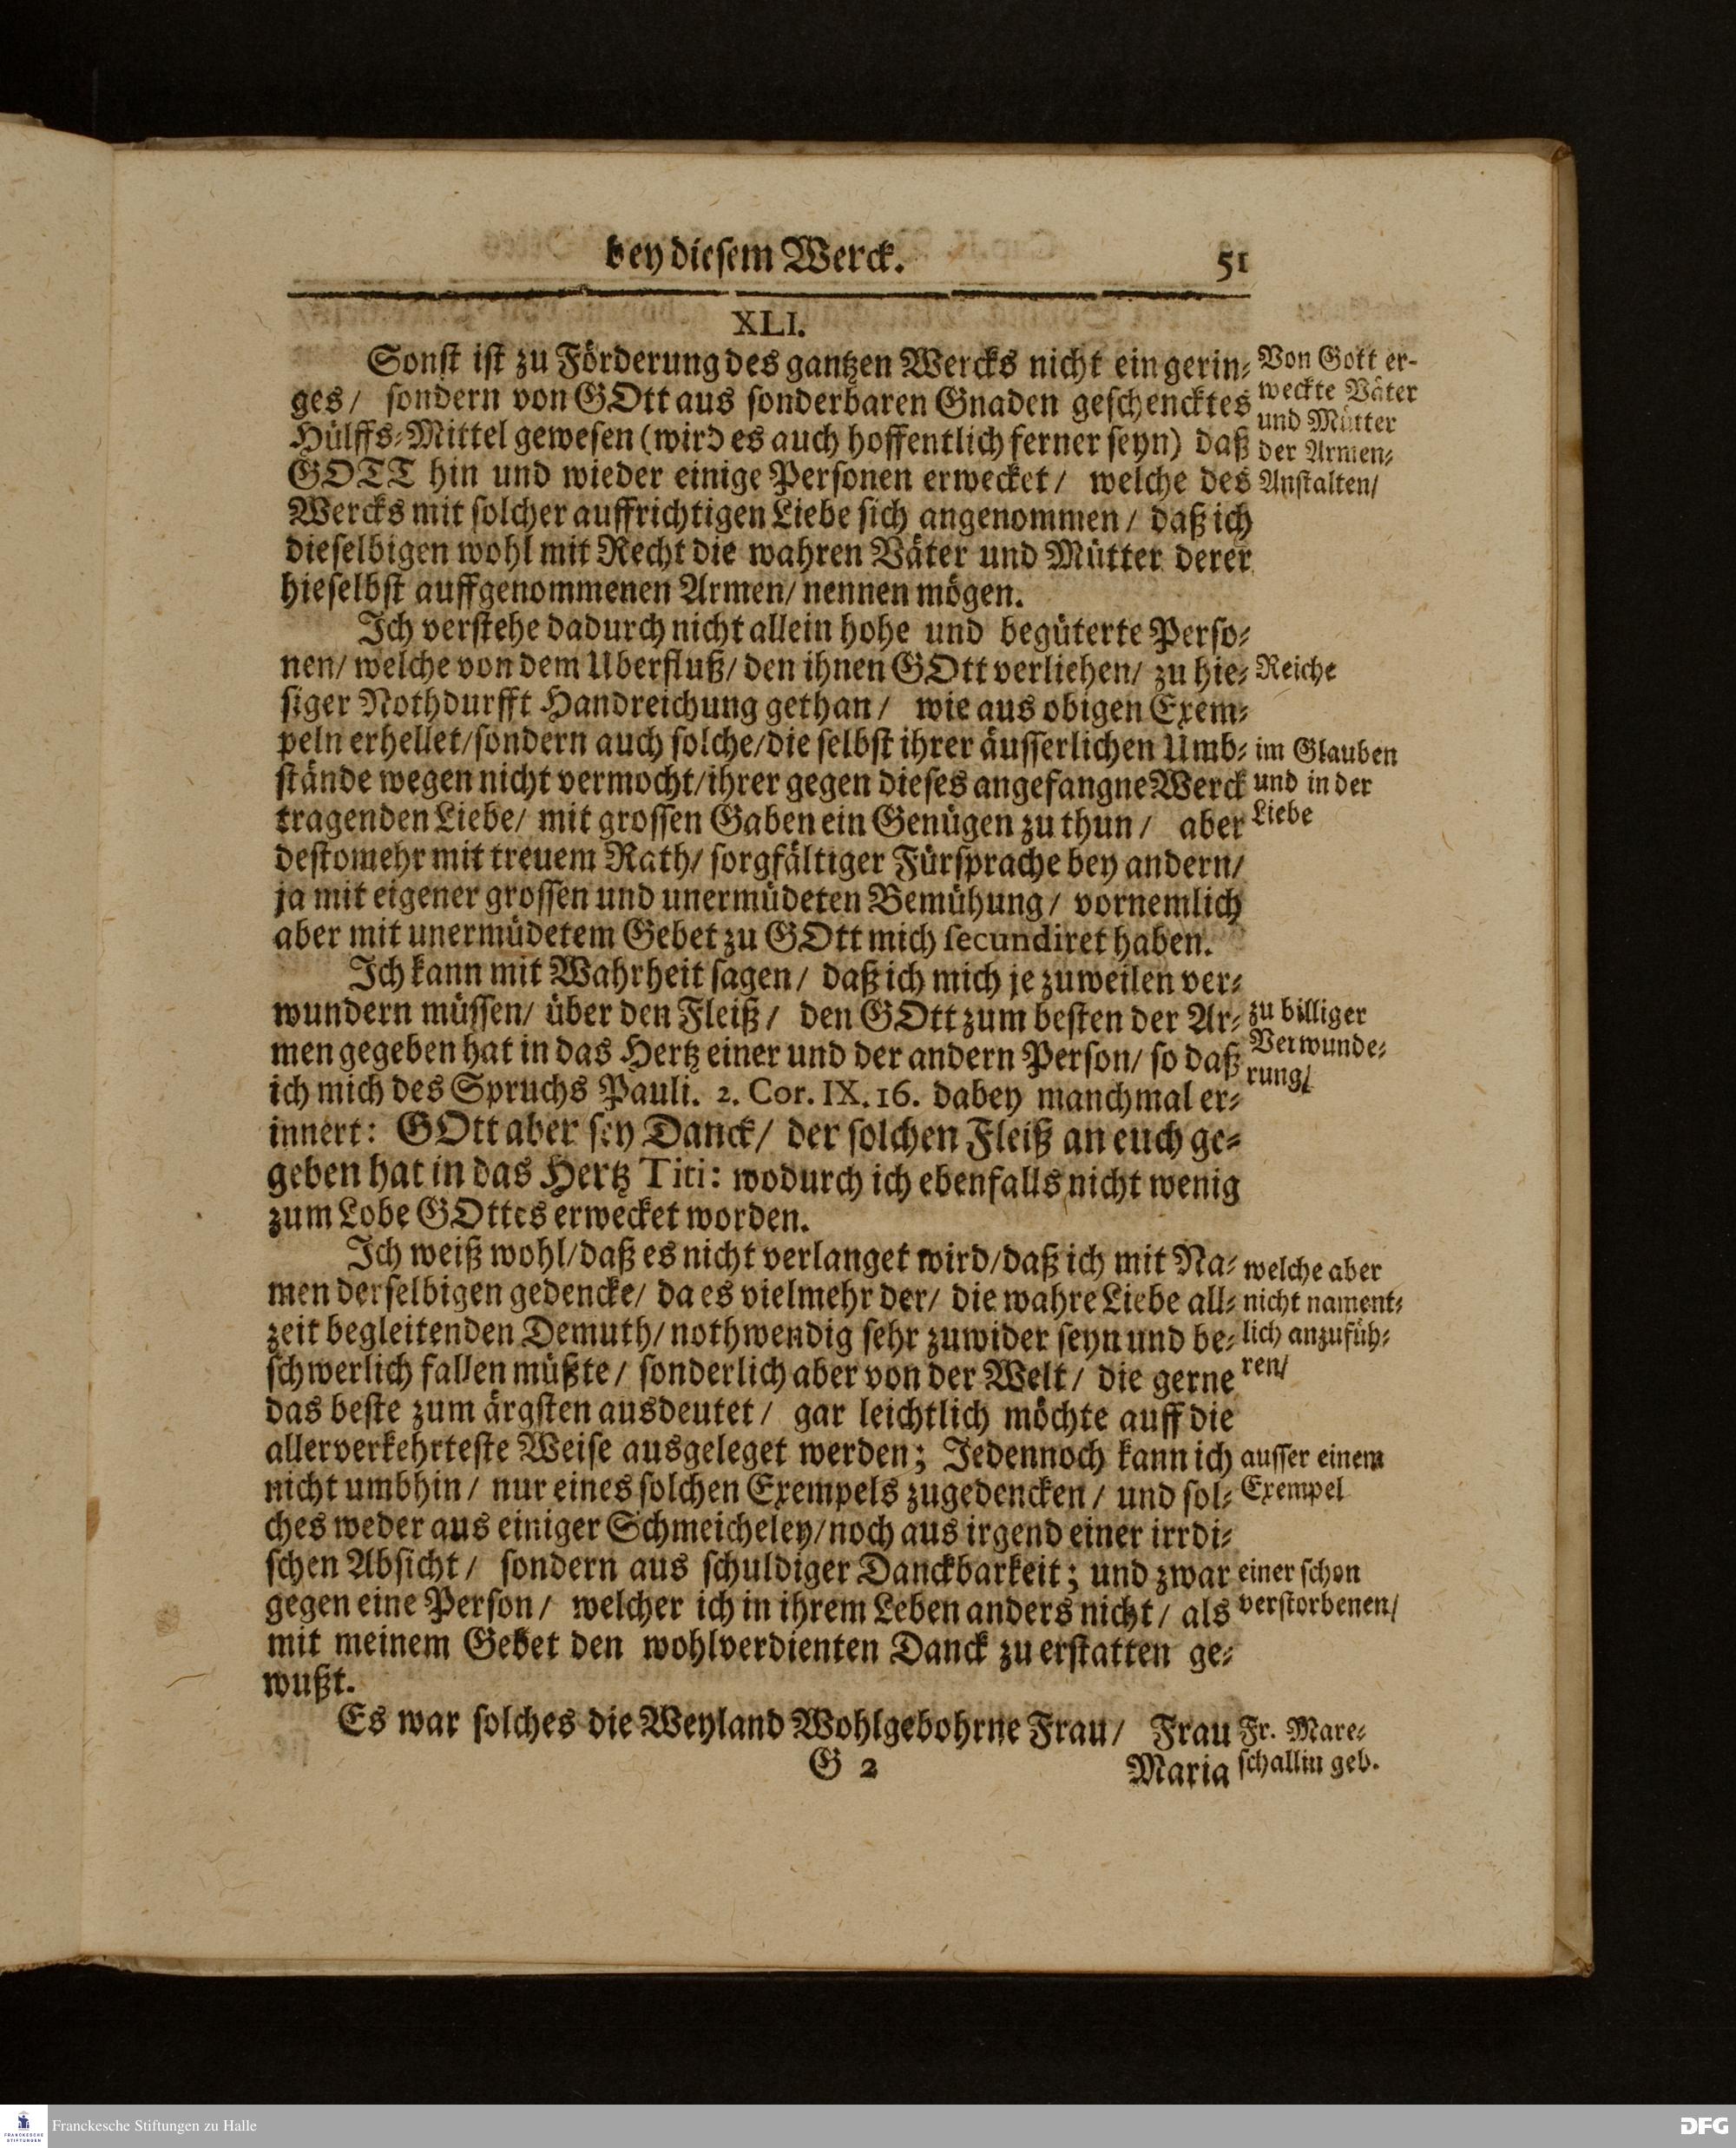 bey diesem Werck. 51
XLI.
Sonst ist zu Förderung des gantzen Wercks nicht ein gerin-
ges/ sondern von GOtt aus sonderbaren Gnaden geschencktes
Hülffs-Mittel gewesen (wird es auch hoffentlich ferner seyn) daß
GOTT hin und wieder einige Personen erwecket/ welche des
Wercks mit solcher auffrichtigen Liebe sich angenommen/ daß ich
dieselbigen wohl mit Recht die wahren Väter und Mütter derer
hieselbst auffgenommenen Armen/ nennen mögen.
Von Gott er-
weckte Väter
und Mütter
der Armen-
Anstalten/
Ich verstehe dadurch nicht allein hohe und begüterte Perso-
nen/ welche von dem Uberfluß/ den ihnen GOtt verliehen/ zu hie-
siger Nothdurfft Handreichung gethan/ wie aus obigen Exem-
peln erhellet/ sondern auch solche/ die selbst ihrer äusserlichen Umb-
stände wegen nicht vermocht/ ihrer gegen dieses angefangne Werck
tragenden Liebe/ mit grossen Gaben ein Genügen zu thun/ aber
destomehr mit treuem Rath/ sorgfältiger Fürsprache bey andern/
ja mit eigener grossen und unermüdeten Bemühung/ vornemlich
aber mit unermüdetem Gebet zu GOtt mich secundiret haben.
Reiche
im Glauben
und in der
Liebe
Ich kann mit Wahrheit sagen/ daß ich mich je zuweilen ver-
wundern müssen/ über den Fleiß/ den GOtt zum besten der Ar-
men gegeben hat in das Hertz einer und der andern Person/ so daß
ich mich des Spruchs Pauli. 2. Cor. IX. 16. dabey manchmal er-
innert: GOtt aber sey Danck/ der solchen Fleiß an euch ge-
geben hat in das Hertz Titi: wodurch ich ebenfalls nicht wenig
zum Lobe GOttes erwecket worden.
zu billiger
Verwunde-
rung/
Ich weiß wohl/ daß es nicht verlanget wird/ daß ich mit Na-
men derselbigen gedencke/ da es vielmehr der/ die wahre Liebe all-
zeit begleitenden Demuth/ nothwendig sehr zuwider seyn und be-
schwerlich fallen müßte/ sonderlich aber von der Welt/ die gerne
das beste zum ärgsten ausdeutet/ gar leichtlich möchte auff die
allerverkehrteste Weise ausgeleget werden; Jedennoch kann ich
nicht umbhin/ nur eines solchen Exempels zugedencken/ und sol-
ches weder aus einiger Schmeicheley/ noch aus irgend einer irrdi-
schen Absicht/ sondern aus schuldiger Danckbarkeit; und zwar
gegen eine Person/ welcher ich in ihrem Leben anders nicht/ als
mit meinem Gebet den wohlverdienten Danck zu erstatten ge-
wußt.
welche aber
nicht nament-
lich anzufüh-
ren/
ausser einem
Exempel
einer schon
verstorbenen/
Es war solches die Weyland Wohlgebohrne Frau/ Frau
G 2 Maria
Fr. Mare-
schallin geb.
Franckesche Stiftungen zu Halle
FRANCKESCHE
STIFTUNGEN
DFG